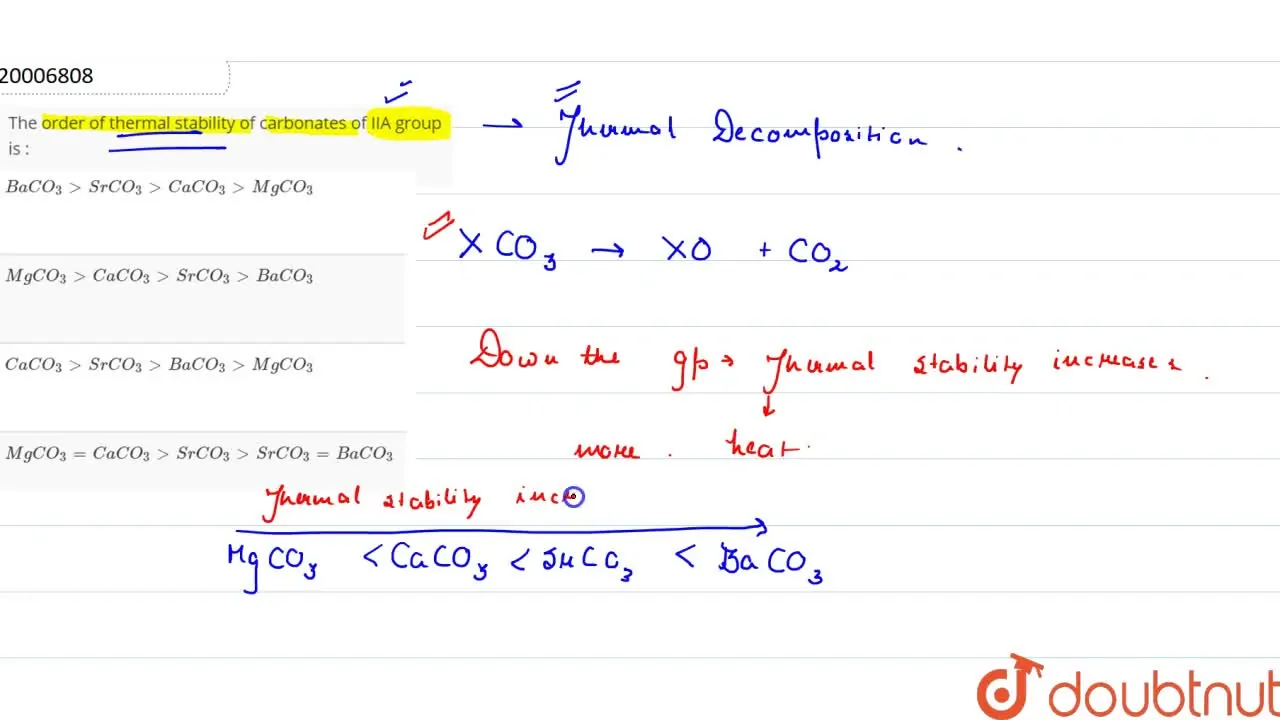 20006808
The order of thermal stability of carbonates of IIA group
is :
BaCO₃ > SrCO₃ > CaCO₃ > MgCO₃
MgCO₃ > CaCO₃ > SrCO₃ > BaCO₃
CaCO₃ > SrCO₃ > BaCO₃ > MgCO₃
MgCO₃ = CaCO₃ > SrCO₃ > SrCO₃ = BaCO₃
→ Thermal Decomposition .
XCO₃ → XO + CO₂
Down the gp → Thermal stability increases .
↓
more . heat .
Thermal stability inc
MgCO₃ < CaCO₃ < SrCO₃ < BaCO₃
doubtnut